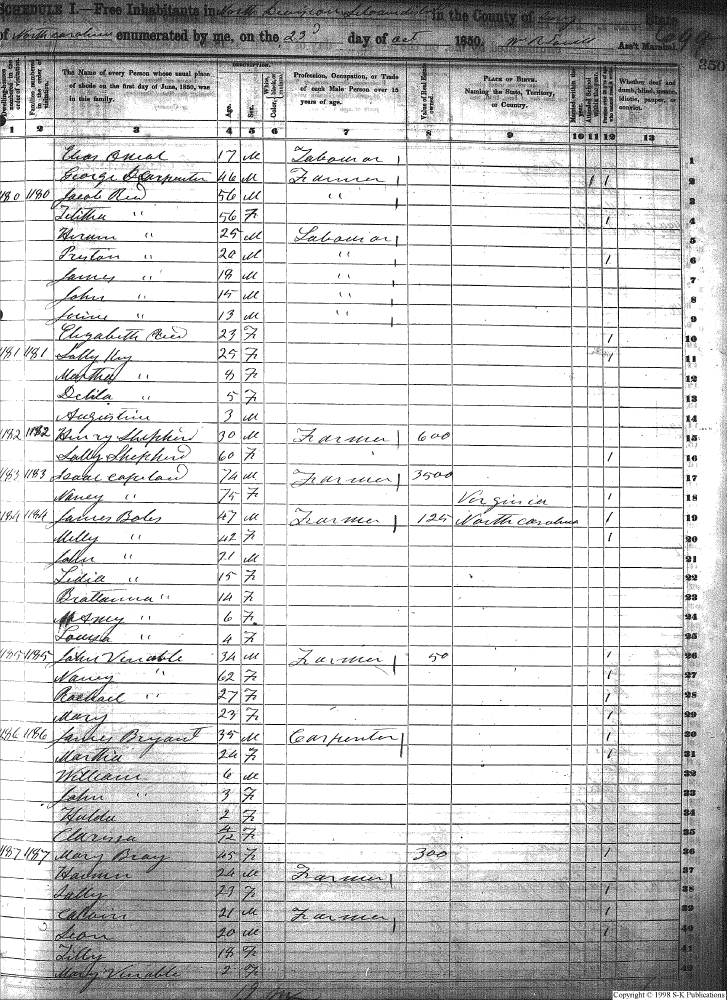 SCHEDULE I.—Free Inhabitants in North Division in the County of State
of North carolina enumerated by me, on the 23d day of Oct 1850. Ass't Marshal.
350
The Name of every Person whose usual place of abode on the first day of June, 1850, was in this family.
Description.
Age.
Sex.
White, Color,
Profession, Occupation, or Trade of each Male Person over 15 years of age.
Value of Real Estate owned.
PLACE OF BIRTH. Naming the State, Territory, or Country.
Whether deaf and dumb, blind, insane, idiotic, pauper, or convict.
1 2 3 4 5 6 7 8 9 10 11 12 13
Elias Oneal 17 M Labourer 1
George Carpenter 46 M Farmer 1 1 2
1180 1180 Jacob Reid 56 M " 3
Telitha " 56 F 1 4
Hiram " 25 M Labourer 5
Preston " 20 M " 1 6
James " 18 M " 7
John " 15 M " 8
" 13 M " 9
Elizabeth Reid 23 F 1 10
1181 1181 Sally 25 F 1 11
Martha " 8 F 12
Delila " 5 F 13
Augustine 3 M 14
1182 1182 Henry Shepherd 30 M Farmer 600 15
Sally Shepherd 60 F 1 16
1183 1183 Isaac Copeland 74 M Farmer 3500 17
Nancy " 75 F Virginia 1 18
1184 1184 James Boles 47 M Farmer 125 North carolina 1 19
Milly " 42 F 1 20
John " 21 M 21
Lidia " 15 F 22
Brattanna " 14 F 23
Amy " 6 F 24
Louisa " 4 F 25
1185 1185 John Venable 34 M Farmer 50 1 26
Nancy " 62 F 1 27
Rachael " 27 F 1 28
Mary 23 F 1 29
1186 1186 James Bryant 35 M Carpenter 1 30
Martha 24 F 1 31
William 6 M 32
John " 3 F 33
Hulda 2 F 34
Clarissa F 35
1187 1187 Mary Bray 45 F 300 1 36
24 M Farmer 37
Sally 23 F 1 38
Calvin 21 M Farmer 1 39
Leon 20 M 1 40
Tilly 18 F 41
Mary Venable 2 F 42
Copyright © 1998 S-K Publications